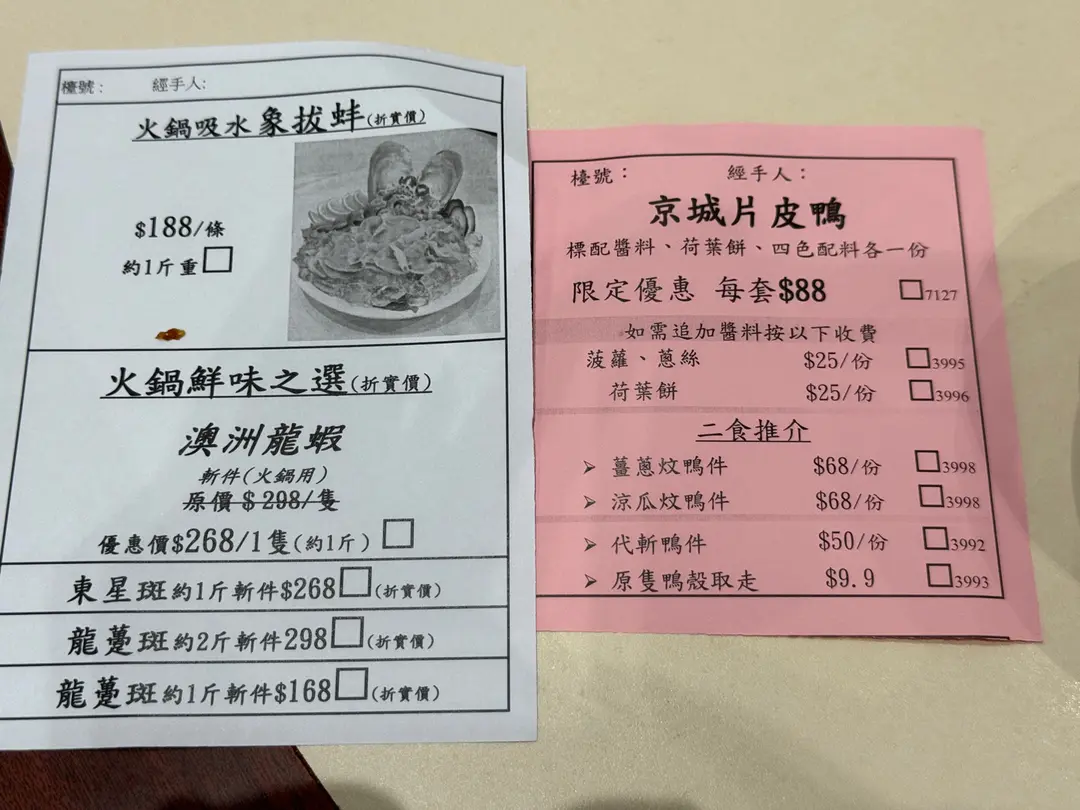 檯號: 經手人:
火鍋吸水象拔蚌(折實價)
$188/條
約1斤重
火鍋鮮味之選(折實價)
澳洲龍蝦
斬件(火鍋用)
原價$298/隻
優惠價$268/1隻(約1斤)
東星斑約1斤斬件$268(折實價)
龍躉斑約2斤斬件298(折實價)
龍躉斑約1斤斬件$168(折實價)
檯號: 經手人:
京城片皮鴨
標配醬料、荷葉餅、四色配料各一份
限定優惠 每套$88 7127
如需追加醬料按以下收費
菠蘿、蔥絲 $25/份 3995
荷葉餅 $25/份 3996
二食推介
➢ 薑蔥炆鴨件 $68/份 3998
➢ 涼瓜炆鴨件 $68/份 3998
➢ 代斬鴨件 $50/份 3992
➢ 原隻鴨殼取走 $9.9 3993